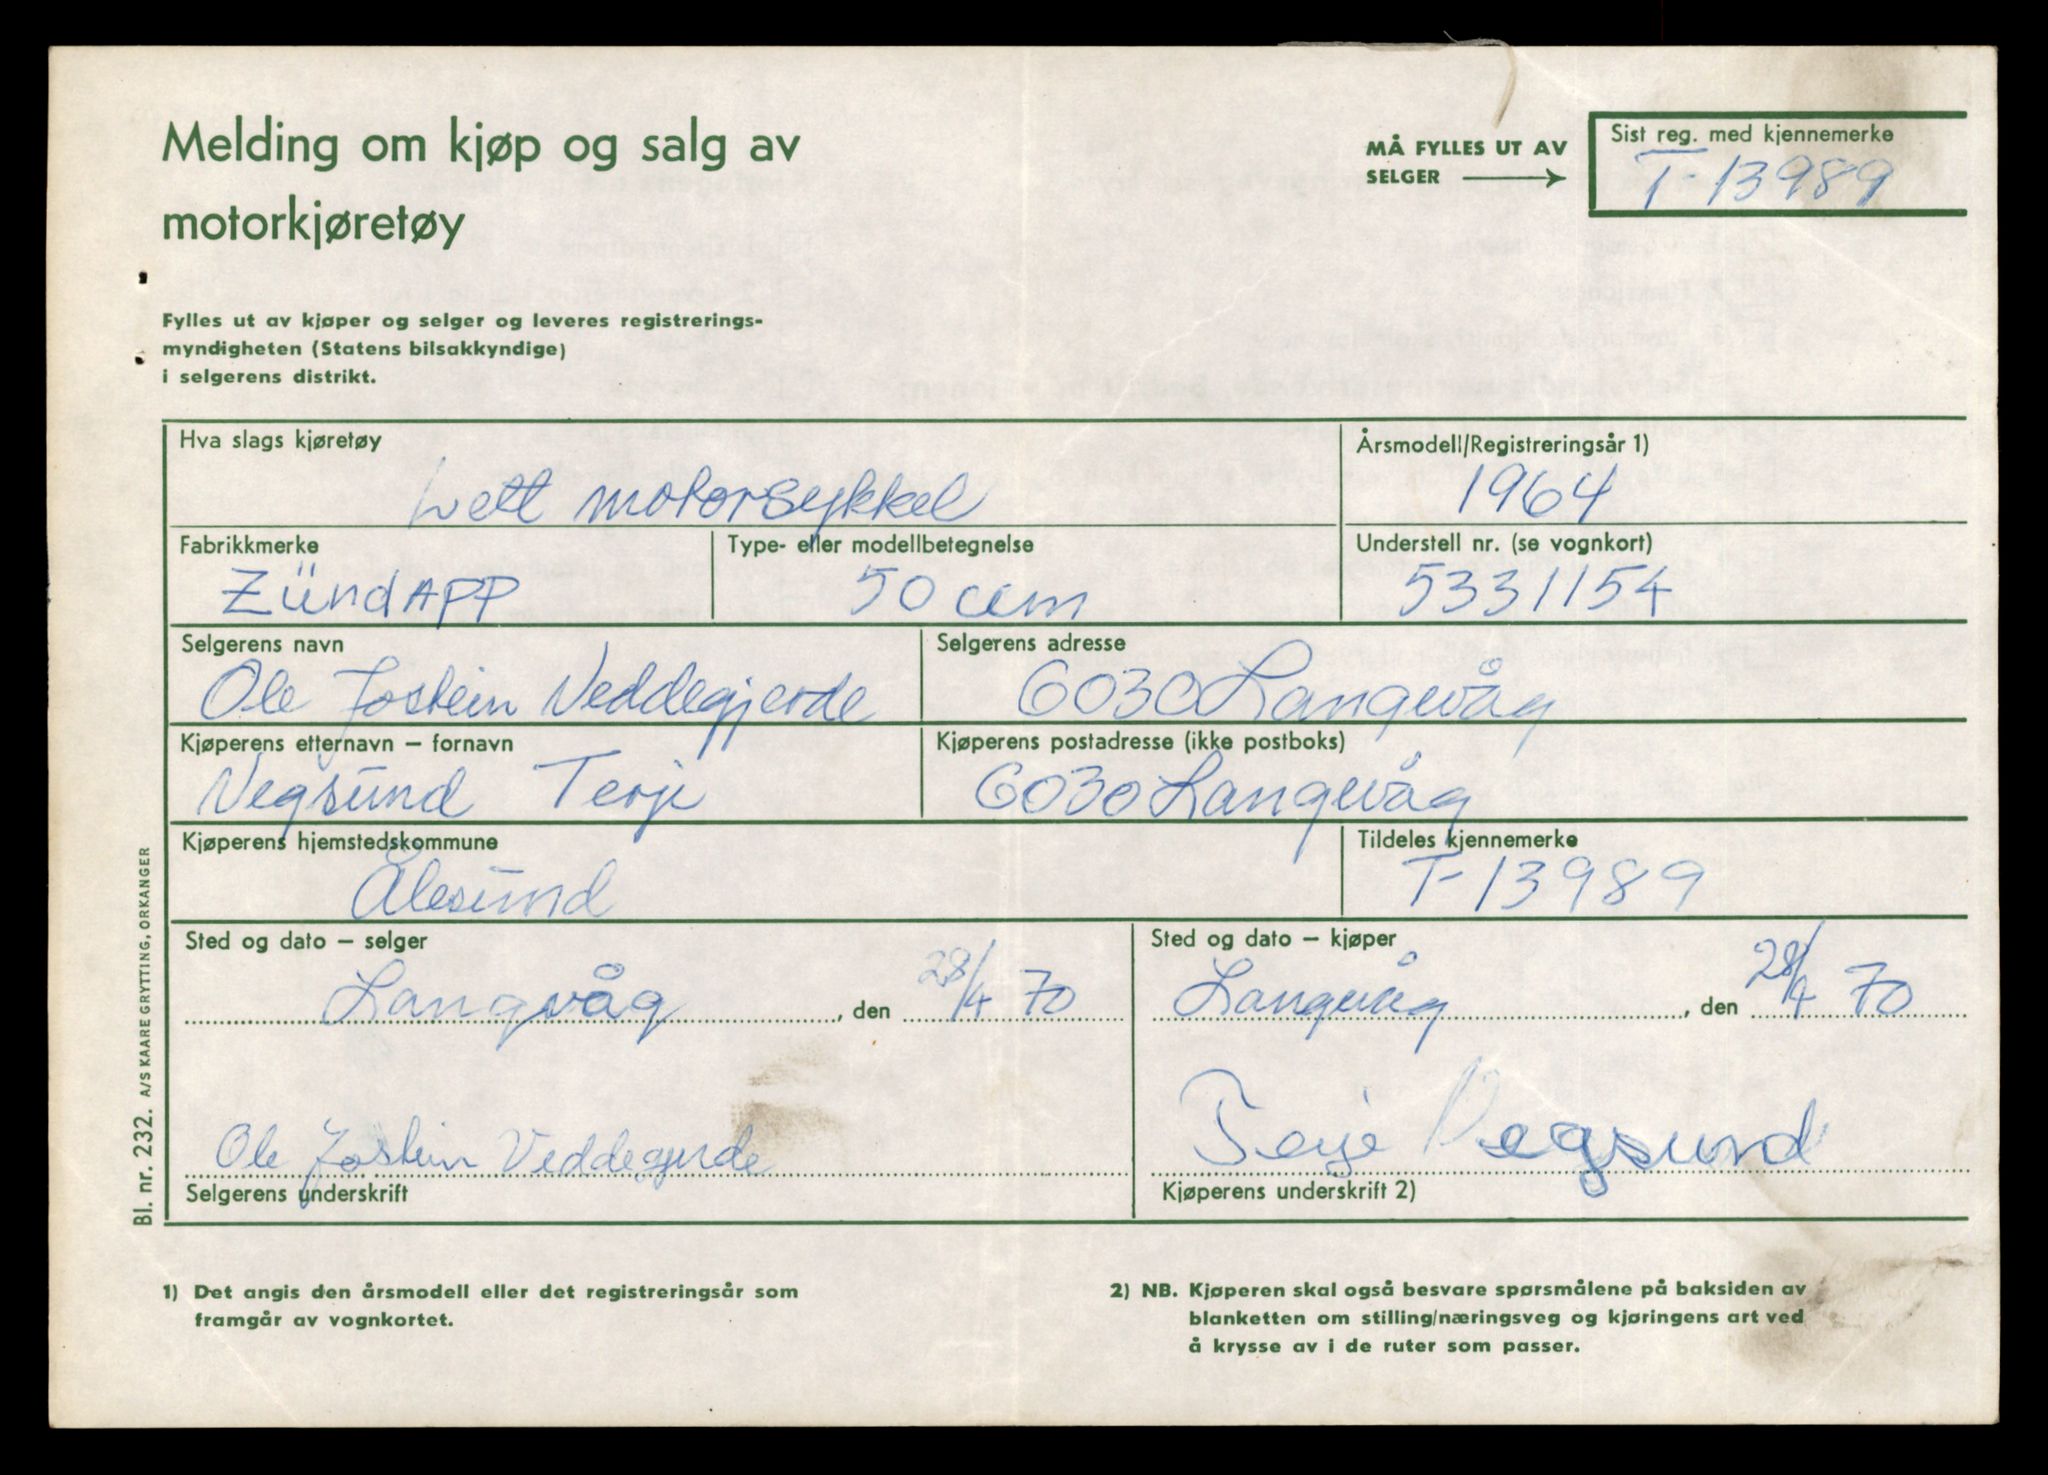 Melding om kjøp og salg av
motorkjøretøy
MÅ FYLLES UT AV
SELGER
Sist reg. med kjennemerke
T-13989
Fylles ut av kjøper og selger og leveres registrerings-
myndigheten (Statens bilsakkyndige)
i selgerens distrikt.
Hva slags kjøretøy
Lett motorsykkel
Årsmodell/Registreringsår 1)
1964
Fabrikkmerke
ZündAPP
Type- eller modellbetegnelse
50 ccm
Understell nr. (se vognkort)
5331154
Selgerens navn
Ole Jostein Veddegjerde
Selgerens adresse
6030 Langevåg
Kjøperens etternavn – fornavn
Vegsund Terje
Kjøperens postadresse (ikke postboks)
6030 Langevåg
Kjøperens hjemstedskommune
Ålesund
Tildeles kjennemerke
T-13989
Sted og dato – selger
Langvåg, den 28/4 70
Sted og dato – kjøper
Langevåg, den 28/4 70
Ole Jostein Veddegjerde
Selgerens underskrift
Terje Vegsund
Kjøperens underskrift 2)
Bl. nr. 232. A/S KAARE GRYTTING, ORKANGER
1) Det angis den årsmodell eller det registreringsår som
framgår av vognkortet.
2) NB. Kjøperen skal også besvare spørsmålene på baksiden av
blanketten om stilling/næringsveg og kjøringens art ved
å krysse av i de ruter som passer.